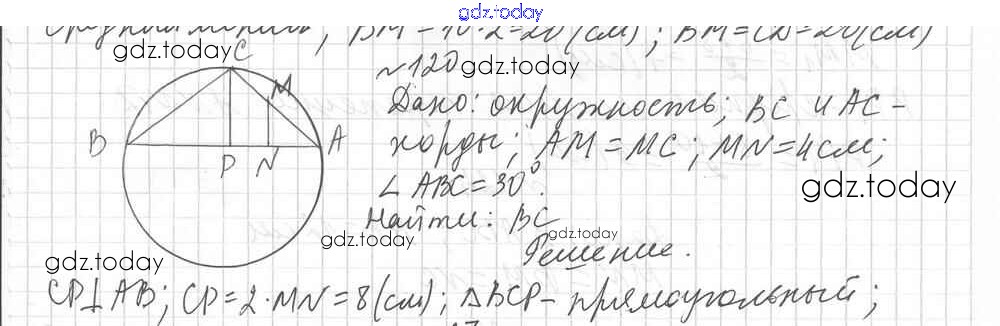 gdz.today
BM = 10·2 = 20 (см); BM = CD = 20 (см)
gdz.today
C
№120
gdz.today
M
Дано: окружность; BC и AC -
B
A
хорды; AM = MC; MN = 4 см;
P N
∠ABC = 30°.
gdz.today
Найти: BC
gdz.today
gdz.today
Решение.
gdz.today
CP⊥AB; CP = 2·MN = 8 (см); ΔBCP - прямоугольный;